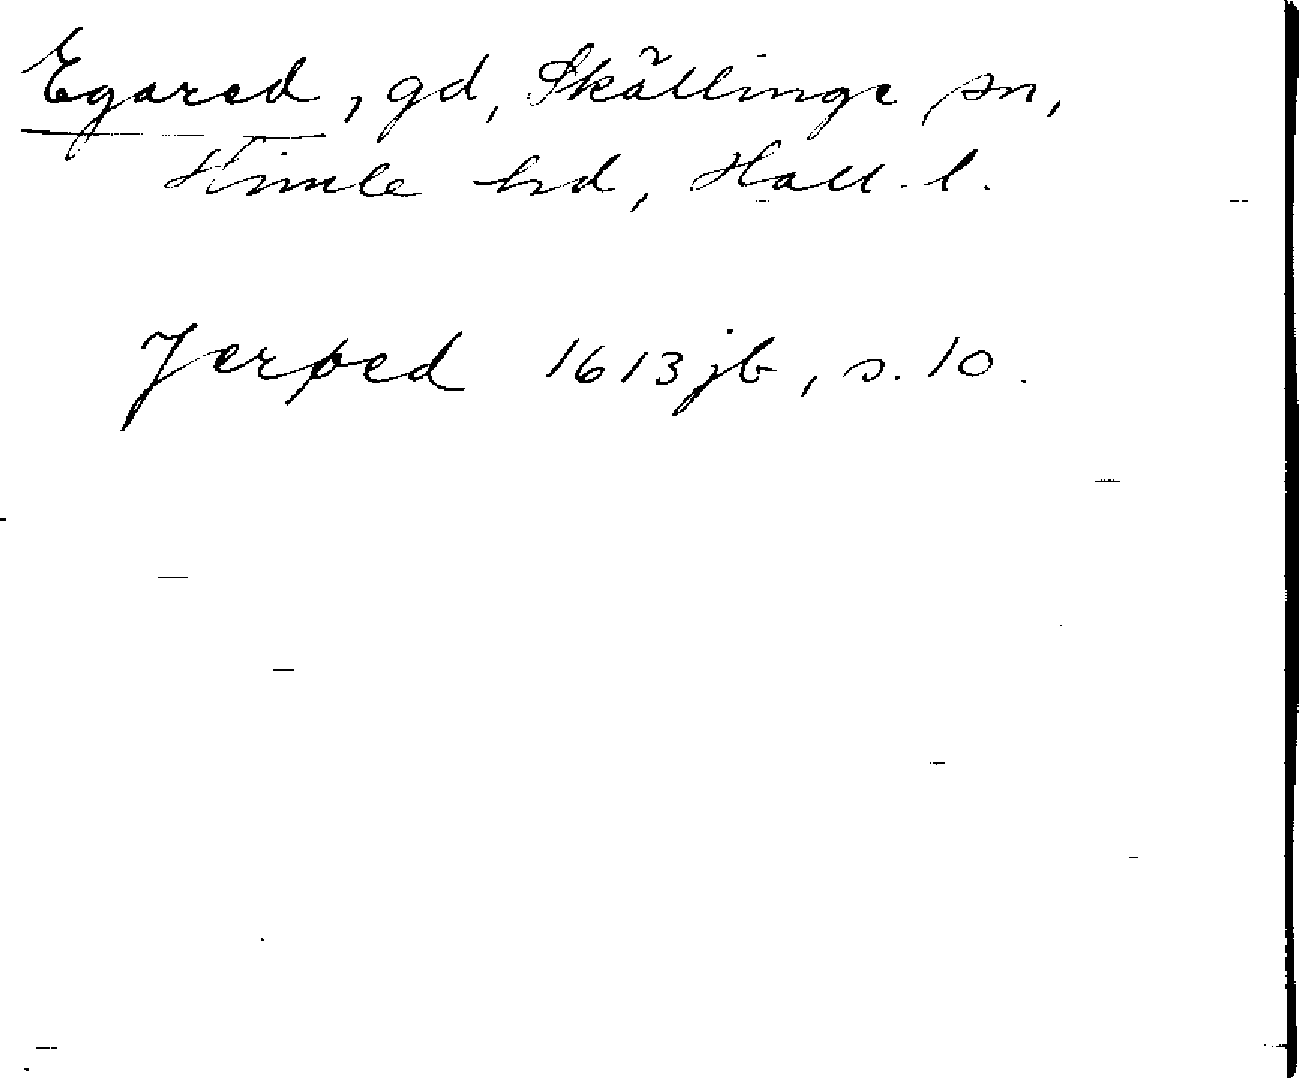 Egared, gd, Skällinge sn,
Himle hd, Hall. l.
Jerped 1613 jb, s. 10.